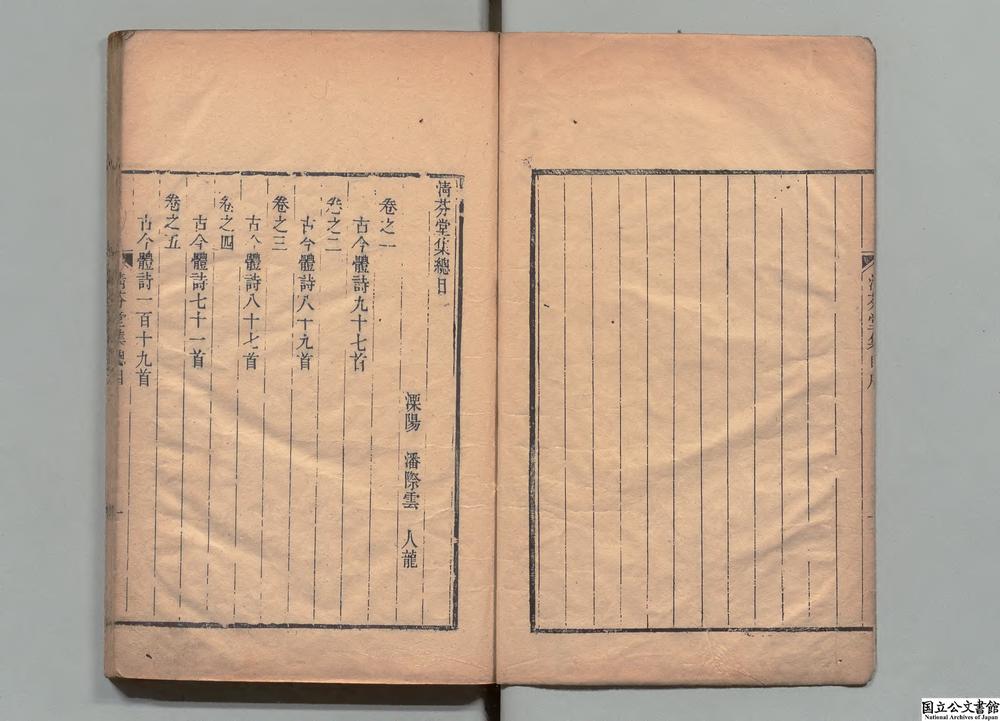 清芬堂集總目
溧陽　潘際雲　人龍
卷之一
古今體詩九十七首
卷之二
古今體詩八十九首
卷之三
古今體詩八十七首
卷之四
古今體詩七十一首
卷之五
古今體詩一百十九首
清芬堂集總目
清芬堂集
国立公文書館
National Archives of Japan